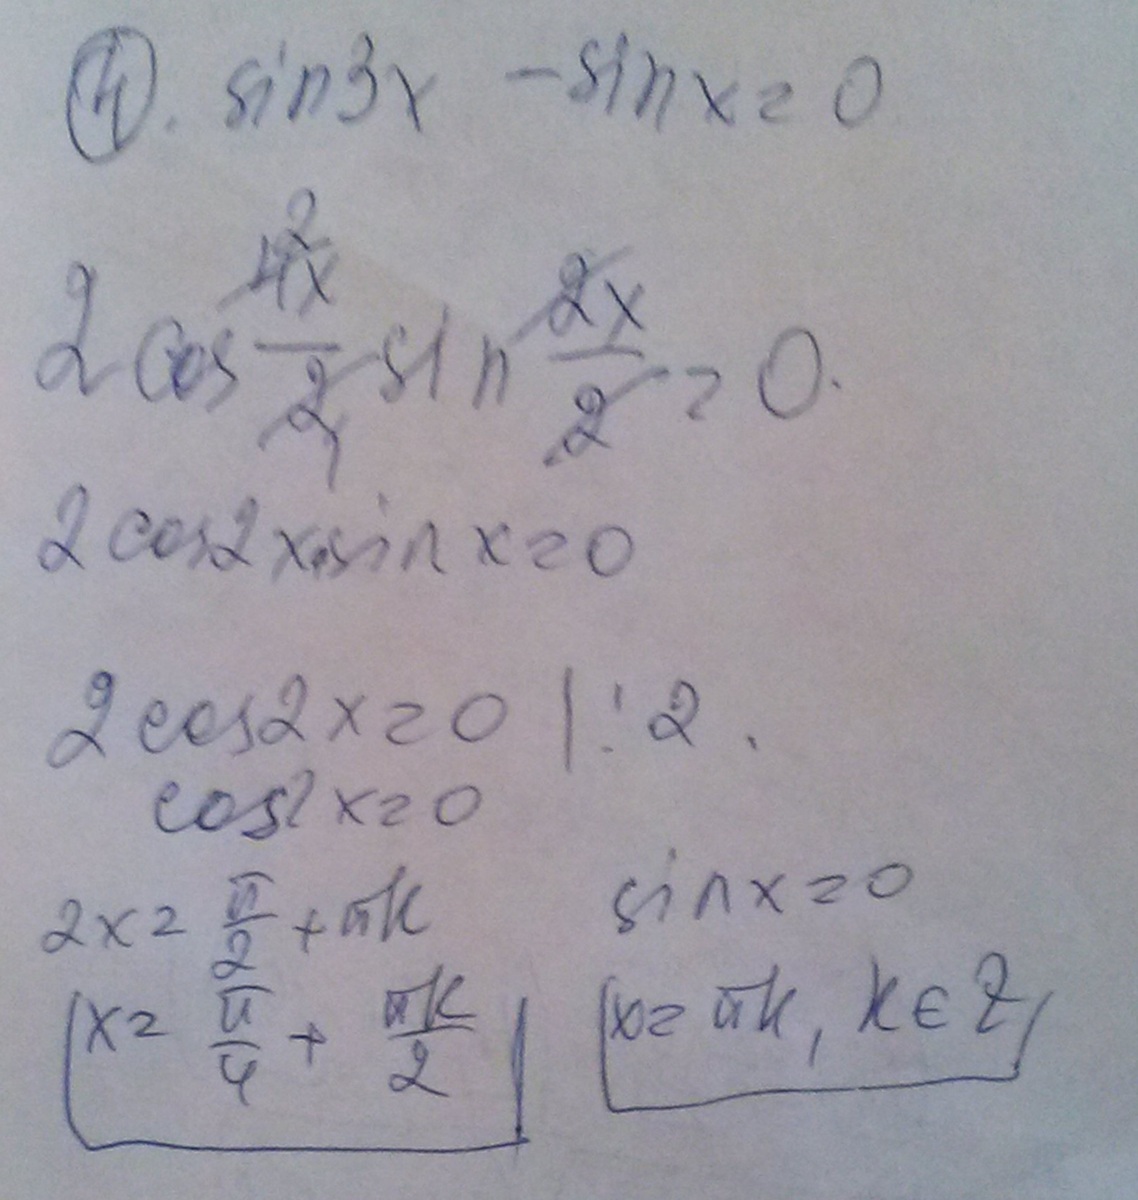 ④. sin3x - sinx = 0
2 cos 4x/2 sin 2x/2 = 0.
2 cos2x·sin x = 0
2 cos2x = 0 | : 2.
cos2x = 0
2x = π/2 + πk
x = π/4 + πk/2
sinx = 0
x = πk, k ∈ Z